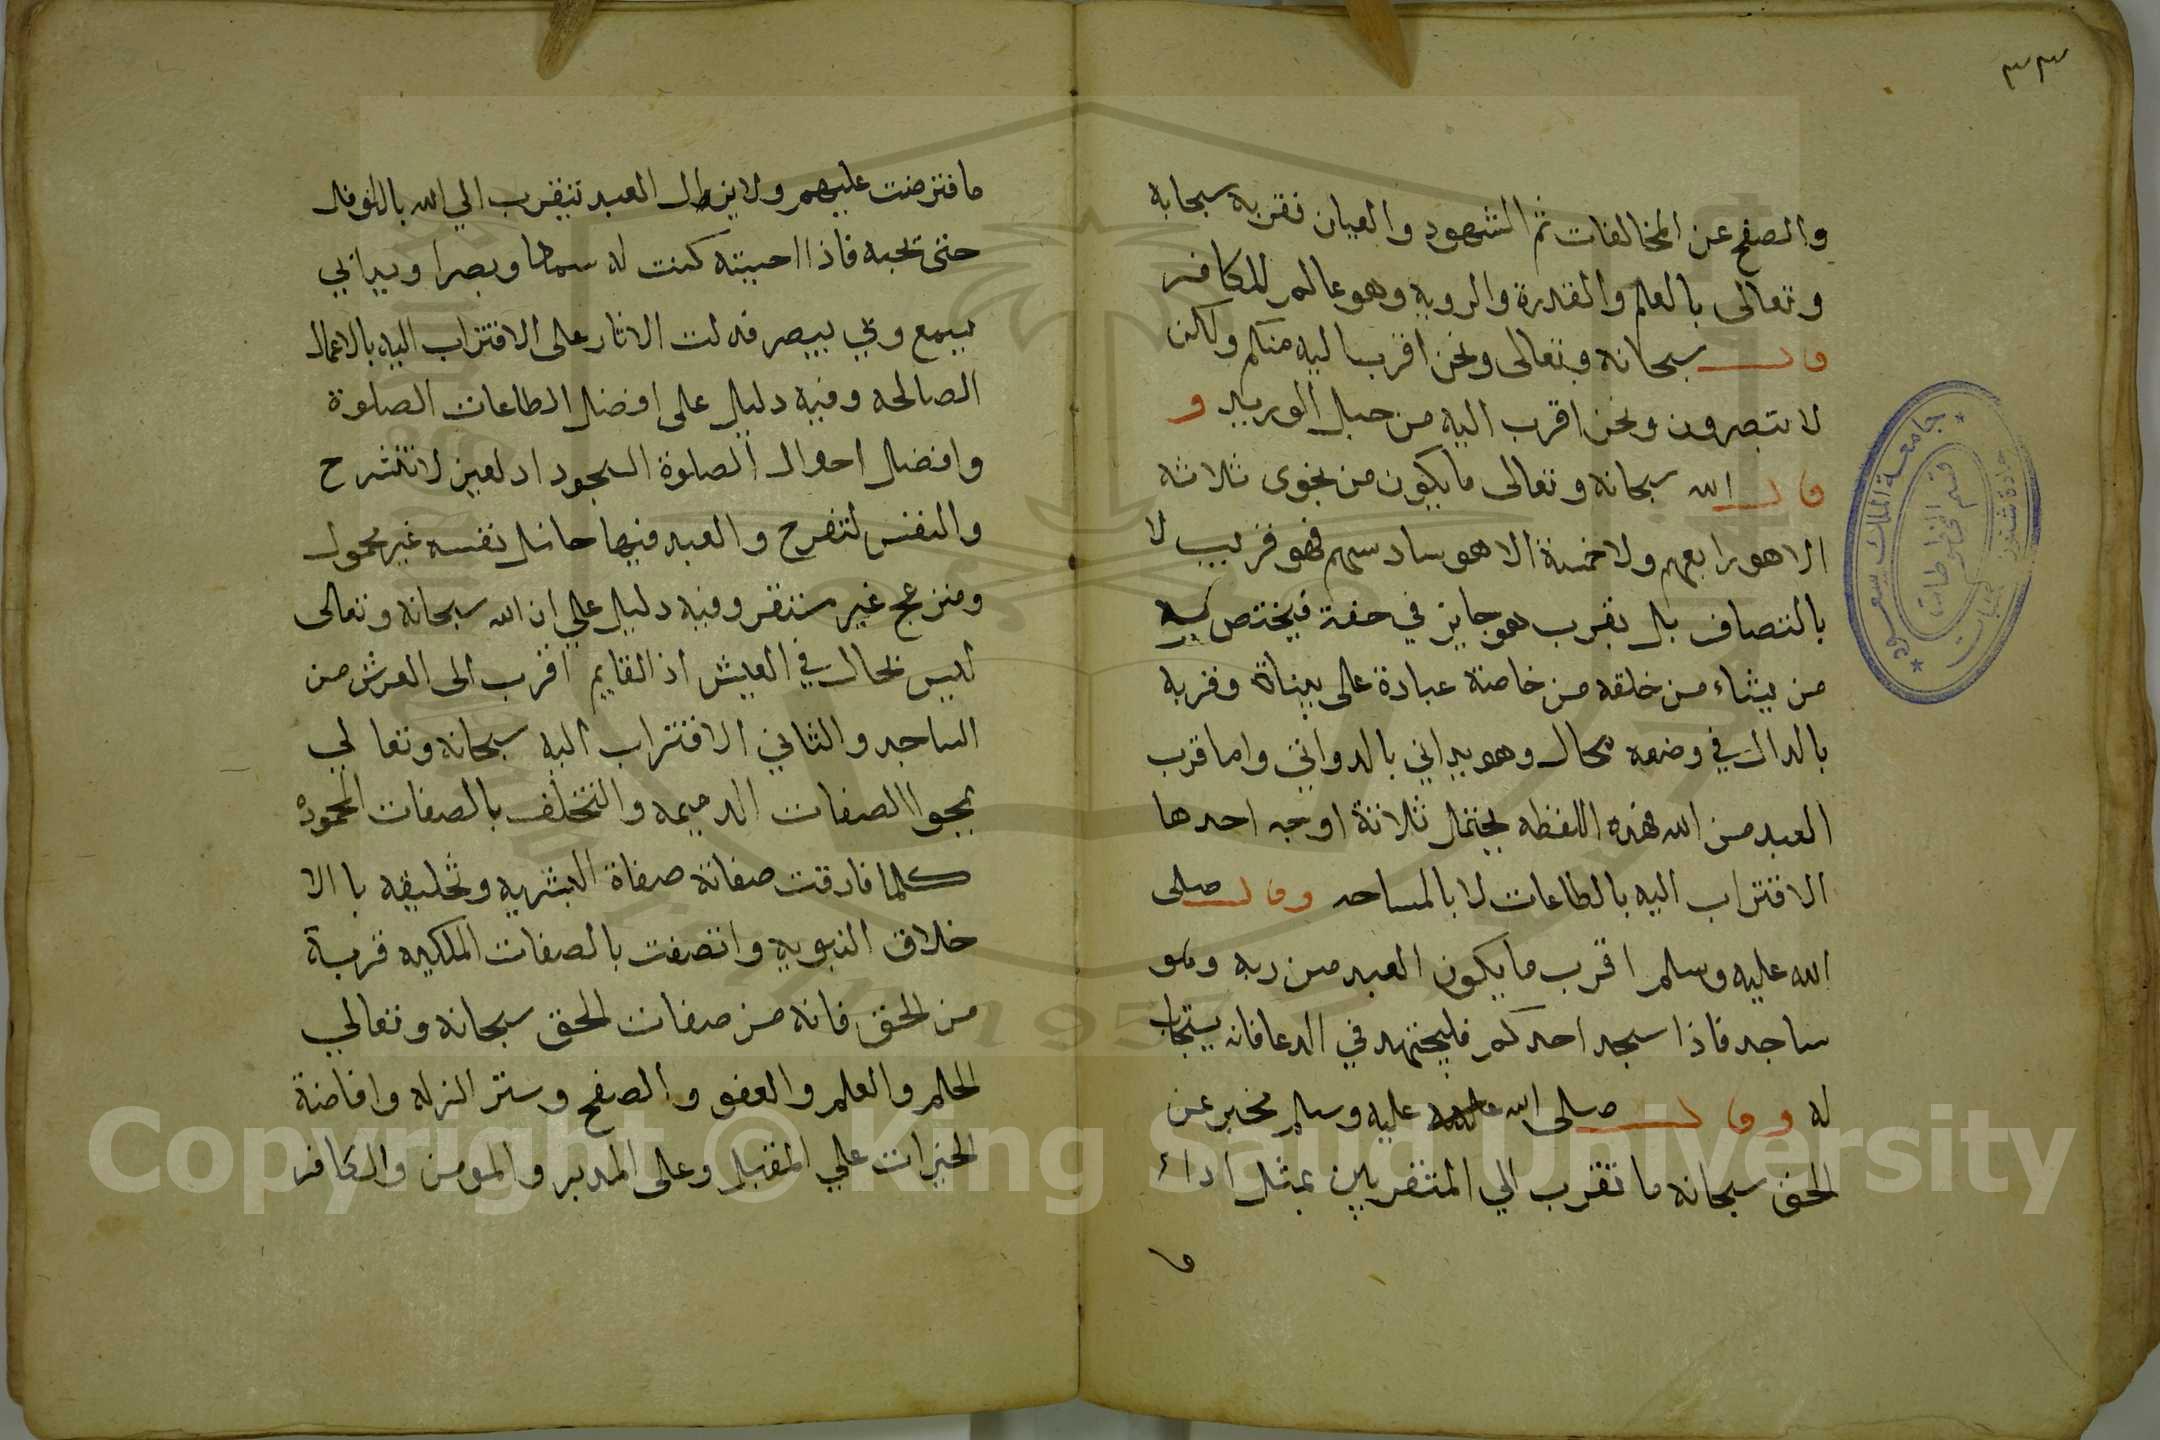 ٣٣
والصفح عن المخالفات ثم الشهود والعيان فقربه سبحانه
وتعالى بالعلم والقدرة والرويه وهو عالم للكافر
وقال سبحانه وتعالى ونحن اقرب اليه منكم ولكن
لا تبصرون ونحن اقرب اليه من حبل الوريد و
قال الله سبحانه وتعالى ما يكون من نجوى ثلاثه
الا هو رابعهم ولا خمسة الا هو سادسهم فهو قريب لا
بالتصاف بل بقرب هو جايز في حقه فيختص به
من يشاء من خلقه من خاصة عباده على بيناة وقربه
بالدال في وضعه محال وهو يداني بالدواني واما قرب
العبد من الله فهذه اللفظه يحتمل ثلاثة اوجه احدها
الاقتراب اليه بالطاعات لا بالمساحه وقال صلى
الله عليه وسلم اقرب ما يكون العبد من ربه وهو
ساجد فاذا سجد احدكم فليجتهد في الدعا فانه يستجاب
له وقال صلى الله عليه وسلم مخبر عن
الحق سبحانه ما تقرب الي المتقربين بمثل اداء
ما
مافترضت عليهم ولا يزال العبد يتقرب الي الله بالنوفل
حتى يحبه فاذا احببته كنت له سمعا وبصرا ويدا بي
يسمع وبي يبصر فدلت الاثار على الاقتراب اليه بالاعمال
الصالحه وفيه دليل على افضل الطاعات الصلوة
وافضل احوال الصلوة السجود اد لعين لا تنشرح
والنفس لتفرح والعبد فيها حامل نفسه غير محمول
ومنزعج غير مستقر وفيه دليل علي ان الله سبحانه وتعالى
ليس بحال في العيش اذ القايم اقرب الى العرش من
الساجد والثاني الاقتراب اليه سبحانه وتعالي
بمحوا الصفات الدميمه والتخلف بالصفات المحموده
كلما فارقت صفاته صفاة البشريه وتخليقه با الا
خلاق النبويه واتصفت بالصفات الملكيه قربة
من الحق فانه من صفات الحق سبحانه وتعالي
الحلم والعلم والعفو والصفح وستر الزله وافاضة
الخيرات علي المقبل وعلى المدبر والمومن والكافر
جامعة الملك سعود
قسم المخطوطات
Copyright © King Saud University
1957